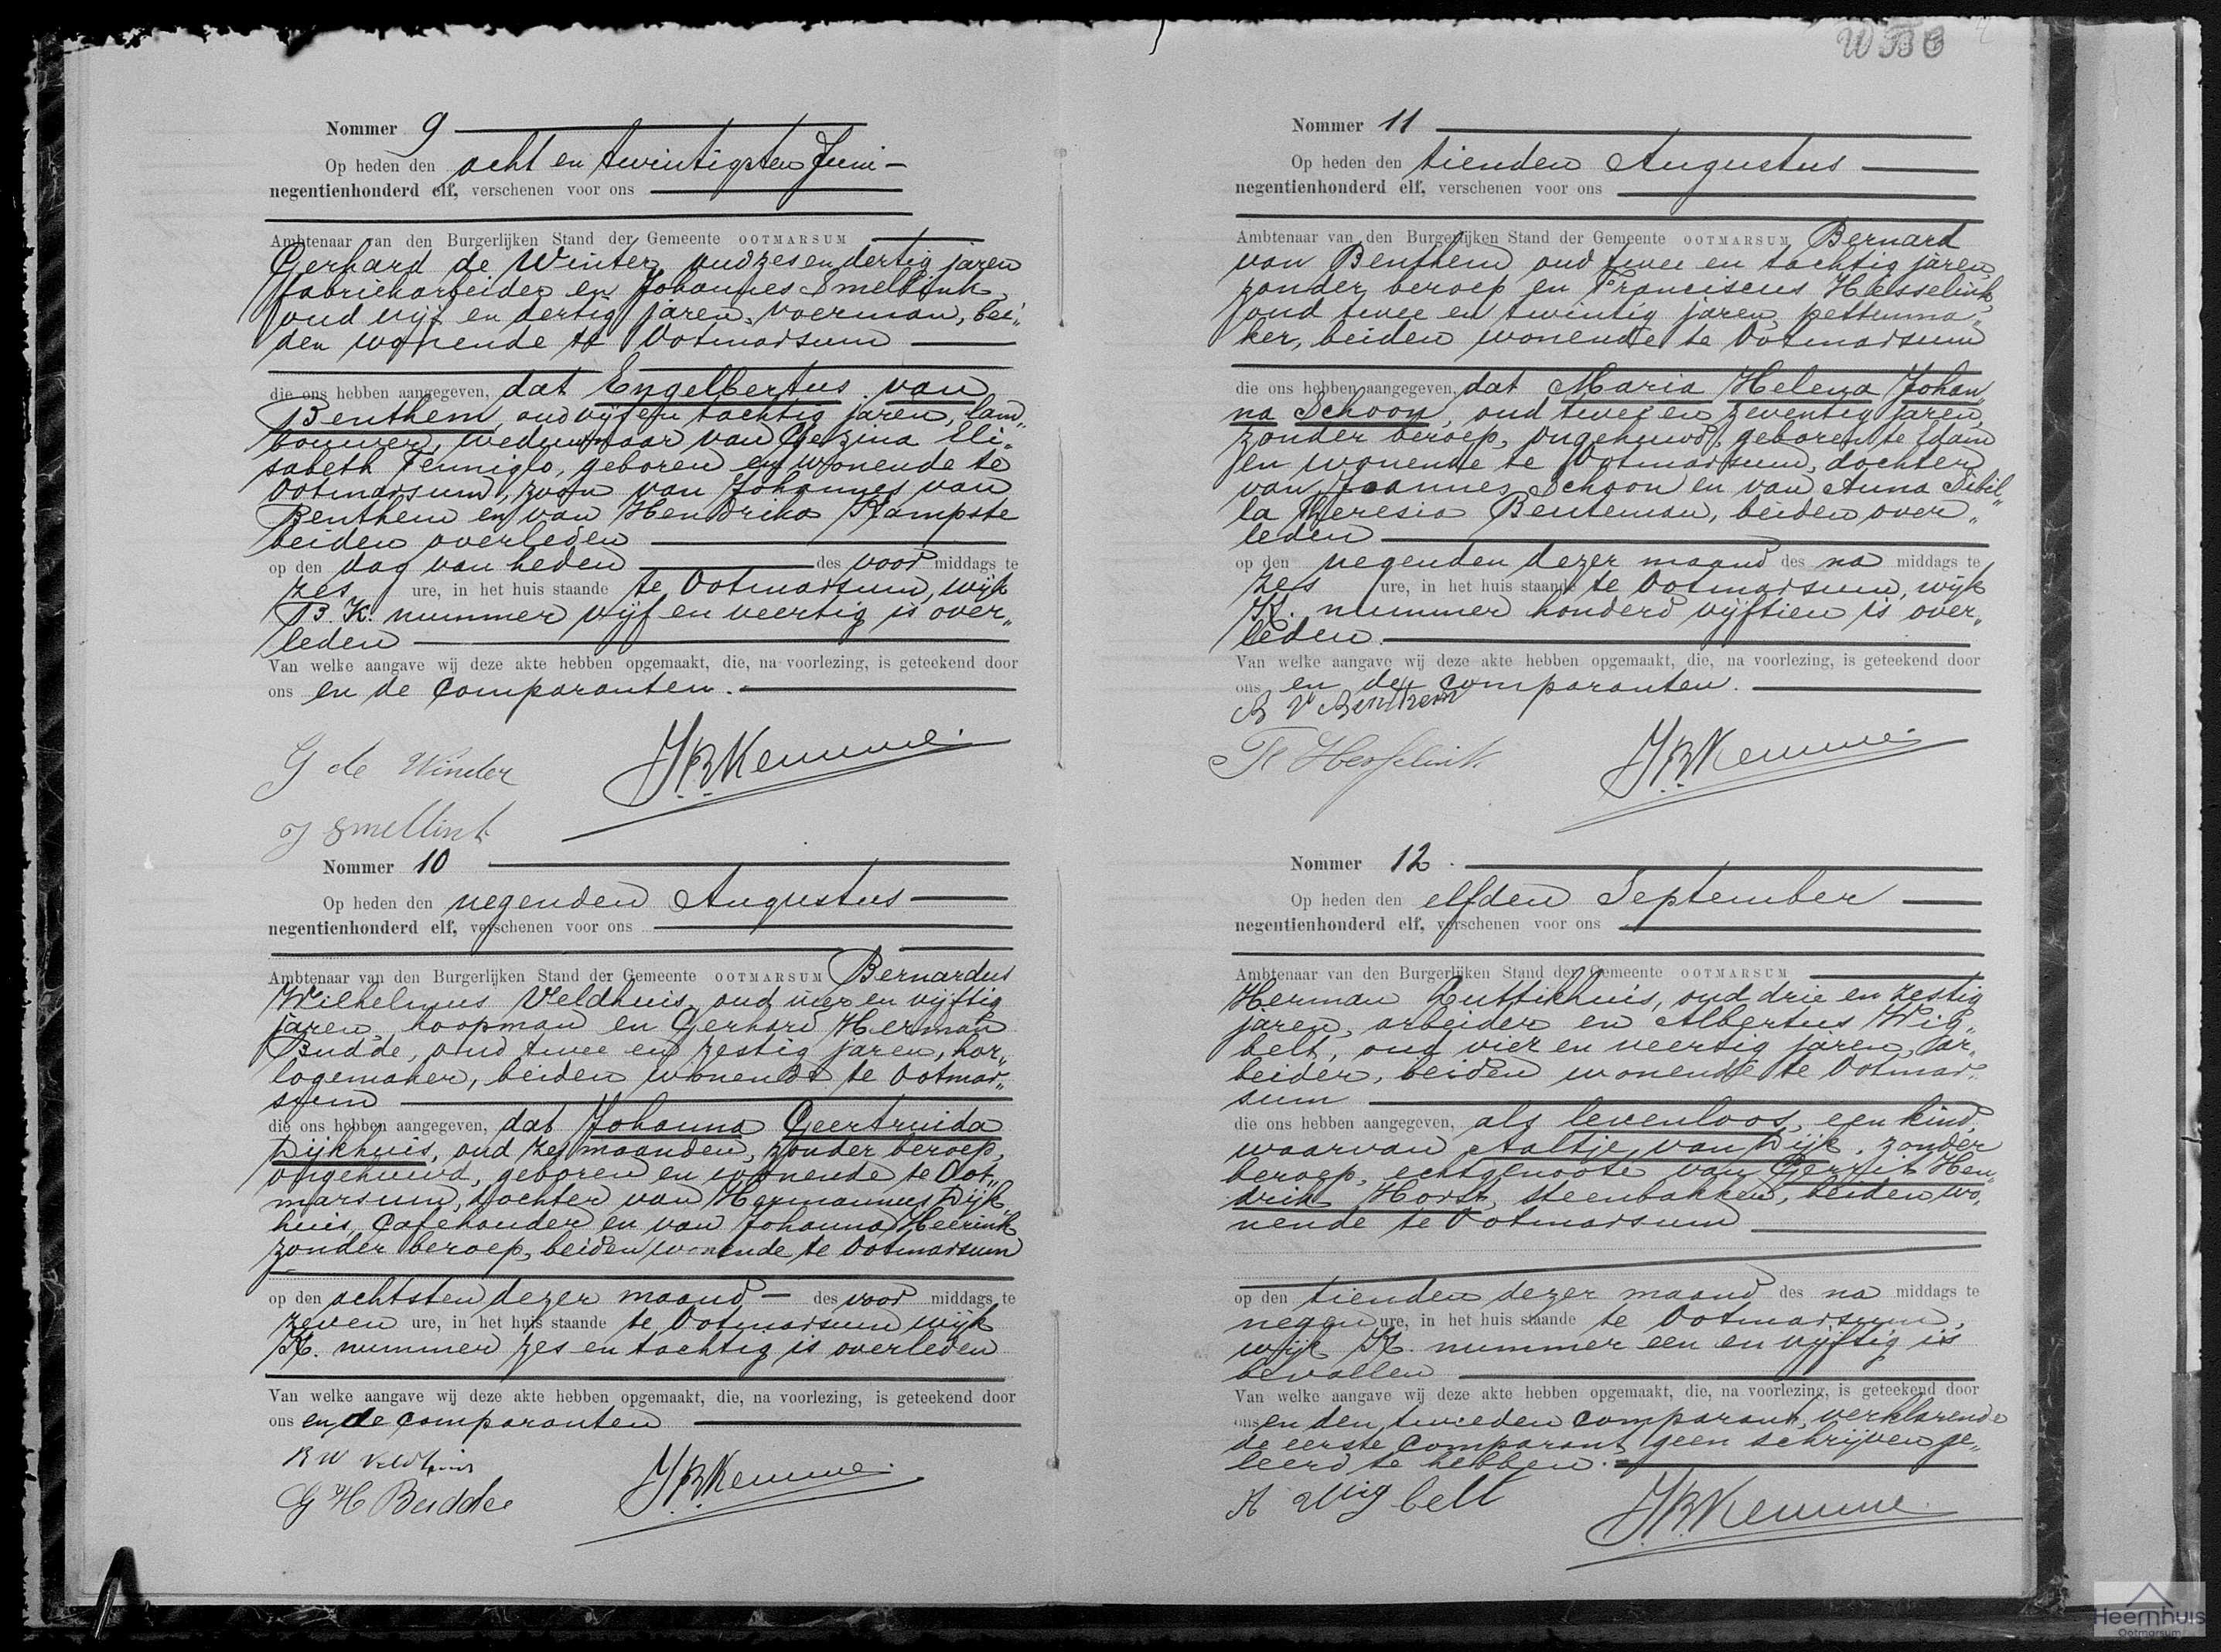 Nommer 9
Op heden den acht en twintigsten Juni
negentienhonderd elf, verschenen voor ons
Ambtenaar van den Burgerlijken Stand der Gemeente OOTMARSUM
Gerhard de Winter, oud zes en dertig jaren
fabriekarbeider en Johannes Smellink
oud vijf en dertig jaren, voerman, bei„
den wonende te Ootmarsum
die ons hebben aangegeven, dat Engelbertus van
Benthem, oud vijf en tachtig jaren, land„
bouwer, weduwnaar van Gezina Eli„
sabeth Tenniglo, geboren en wonende te
Ootmarsum, zoon van Johannes van
Benthem en van Hendrika Kampste
beiden overleden
op den dag van heden des voor middags te
zes ure, in het huis staande te Ootmarsum, wijk
B. K. nummer vijf en veertig is over„
leden
Van welke aangave wij deze akte hebben opgemaakt, die, na voorlezing, is geteekend door
ons en de comparanten.
G de Winder
JBKemme.
J Smellink
Nommer 10
Op heden den negenden Augustus
negentienhonderd elf, verschenen voor ons
Ambtenaar van den Burgerlijken Stand der Gemeente OOTMARSUM Bernardus
Wilhelmus Veldhuis, oud vier en vijftig
jaren, koopman en Gerhard Herman
Budde, oud twee en zestig jaren, hor„
logemaker, beiden wonende te Ootmar„
sum
die ons hebben aangegeven, dat Johanna Geertruida
Dijkhuis, oud zes maanden, zonder beroep,
ongehuwd, geboren en wonende te Oot„
marsum, dochter van Hermannus Dijk„
huis, Cafehouder en van Johanna Heerink
zonder beroep, beiden wonende te Ootmarsum
op den achtsten dezer maand des voor middags te
zeven ure, in het huis staande te Ootmarsum wijk
K. nummer zes en tachtig is overleden
Van welke aangave wij deze akte hebben opgemaakt, die, na voorlezing, is geteekend door
ons en de comparanten
B W Veldhuis
G H Budde
JBKemme.
W B O
Nommer 11
Op heden den tienden Augustus
negentienhonderd elf, verschenen voor ons
Ambtenaar van den Burgerlijken Stand der Gemeente OOTMARSUM Bernard
van Benthem oud twee en tachtig jaren,
zonder beroep en Franciscus Hesselink,
oud twee en twintig jaren, pettenma„
ker, beiden wonende te Ootmarsum
die ons hebben aangegeven, dat Maria Helena Johan„
na Schoon, oud twee en zeventig jaren,
zonder beroep, ongehuwd, geboren te Edam
en wonende te Ootmarsum, dochter
van Joannes Schoon en van Anna Sibil„
la Theresia Benteman, beiden over„
leden
op den negenden dezer maand des na middags te
zes ure, in het huis staande te Ootmarsum, wijk
K. nummer honderd vijftien is over„
leden.
Van welke aangave wij deze akte hebben opgemaakt, die, na voorlezing, is geteekend door
ons en de comparanten.
B v Benthem
Fr Hesselink
JBKemme.
Nommer 12.
Op heden den elfden September
negentienhonderd elf, verschenen voor ons
Ambtenaar van den Burgerlijken Stand der Gemeente OOTMARSUM
Herman Luttikhuis, oud drie en zestig
jaren, arbeider en Albertus Wig„
belt, oud vier en veertig jaren, ar„
beider, beiden wonende te Ootmar„
sum
die ons hebben aangegeven, als levenloos, een kind,
waarvan Aaltje van Dijk, zonder
beroep, echtgenoote van Gerrit Hen„
drik Horst, steenbakker, beiden wo„
nende te Ootmarsum
op den tienden dezer maand des na middags te
negen ure, in het huis staande te Ootmarsum,
wijk K. nummer een en vijftig is
bevallen
Van welke aangave wij deze akte hebben opgemaakt, die, na voorlezing, is geteekend door
ons en den tweeden comparant, verklarende
de eerste comparant geen schrijven ge„
leerd te hebben.
A Wigbelt
JBKemme.
Heernhuis
Ootmarsum